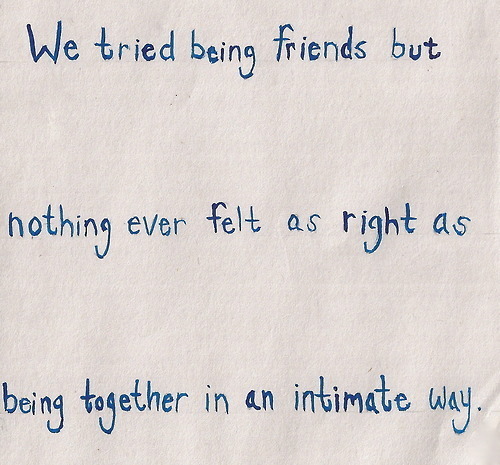 We tried being friends but
nothing ever felt as right as
being together in an intimate way.